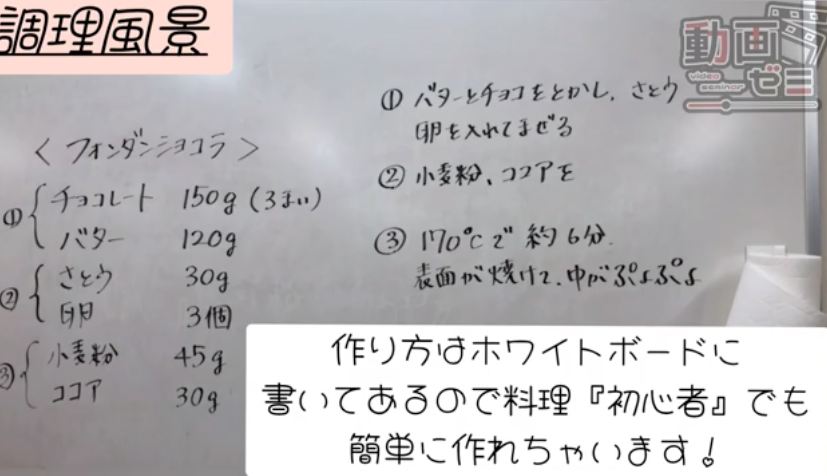 調理風景
動画
video
seminar
ゼミ
<フォンダンショコラ>
① チョコレート 150g (3まい)
バター 120g
② さとう 30g
卵 3個
③ 小麦粉 45g
ココア 30g
① バターとチョコをとかし、さとう
卵を入れてまぜる
② 小麦粉、ココアを
③ 170℃で 約6分.
表面が焼けて、中がぷよぷよ
作り方はホワイトボードに
書いてあるので料理『初心者』でも
簡単に作れちゃいます!